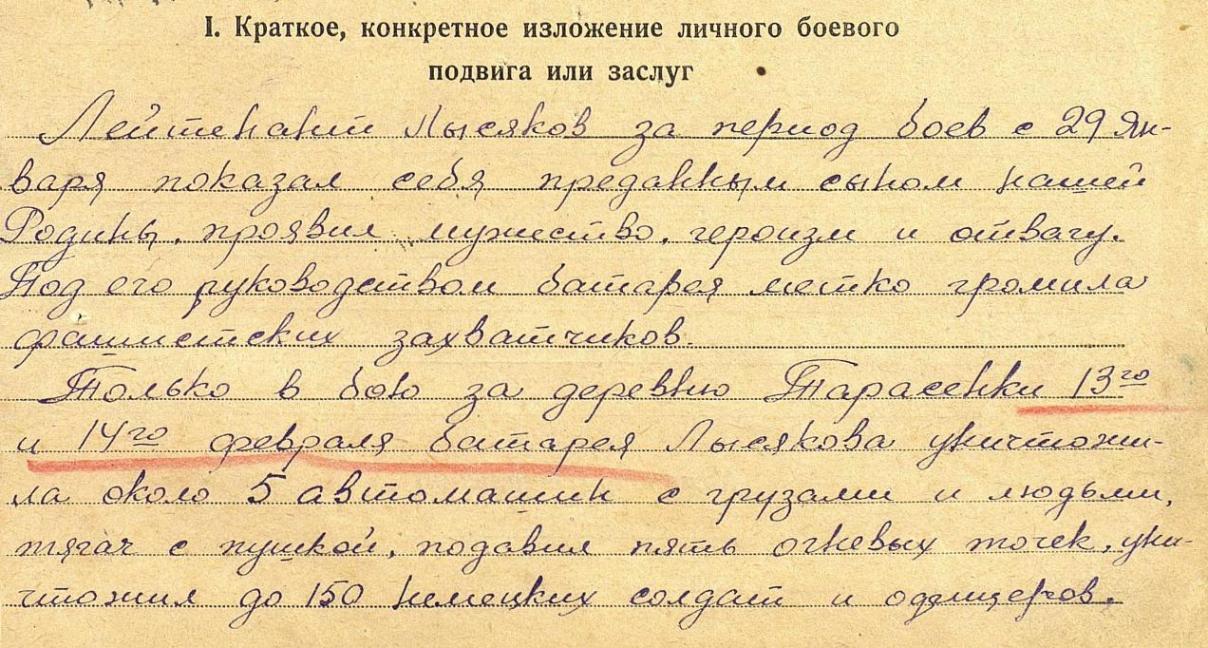 I. Краткое, конкретное изложение личного боевого
подвига или заслуг
Лейтенант Лысяков за период боев с 29 Ян-
варя показал себя преданным сыном нашей
Родины, проявил мужество, героизм и отвагу.
Под его руководством батарея метко громила
фашистских захватчиков.
Только в бою за деревню Тарасенки 13го
и 14го февраля батарея Лысякова уничтожи-
ла около 5 автомашин с грузами и людьми,
тягач с пушкой, подавил пять огневых точек, уни-
чтожил до 150 немецких солдат и офицеров.